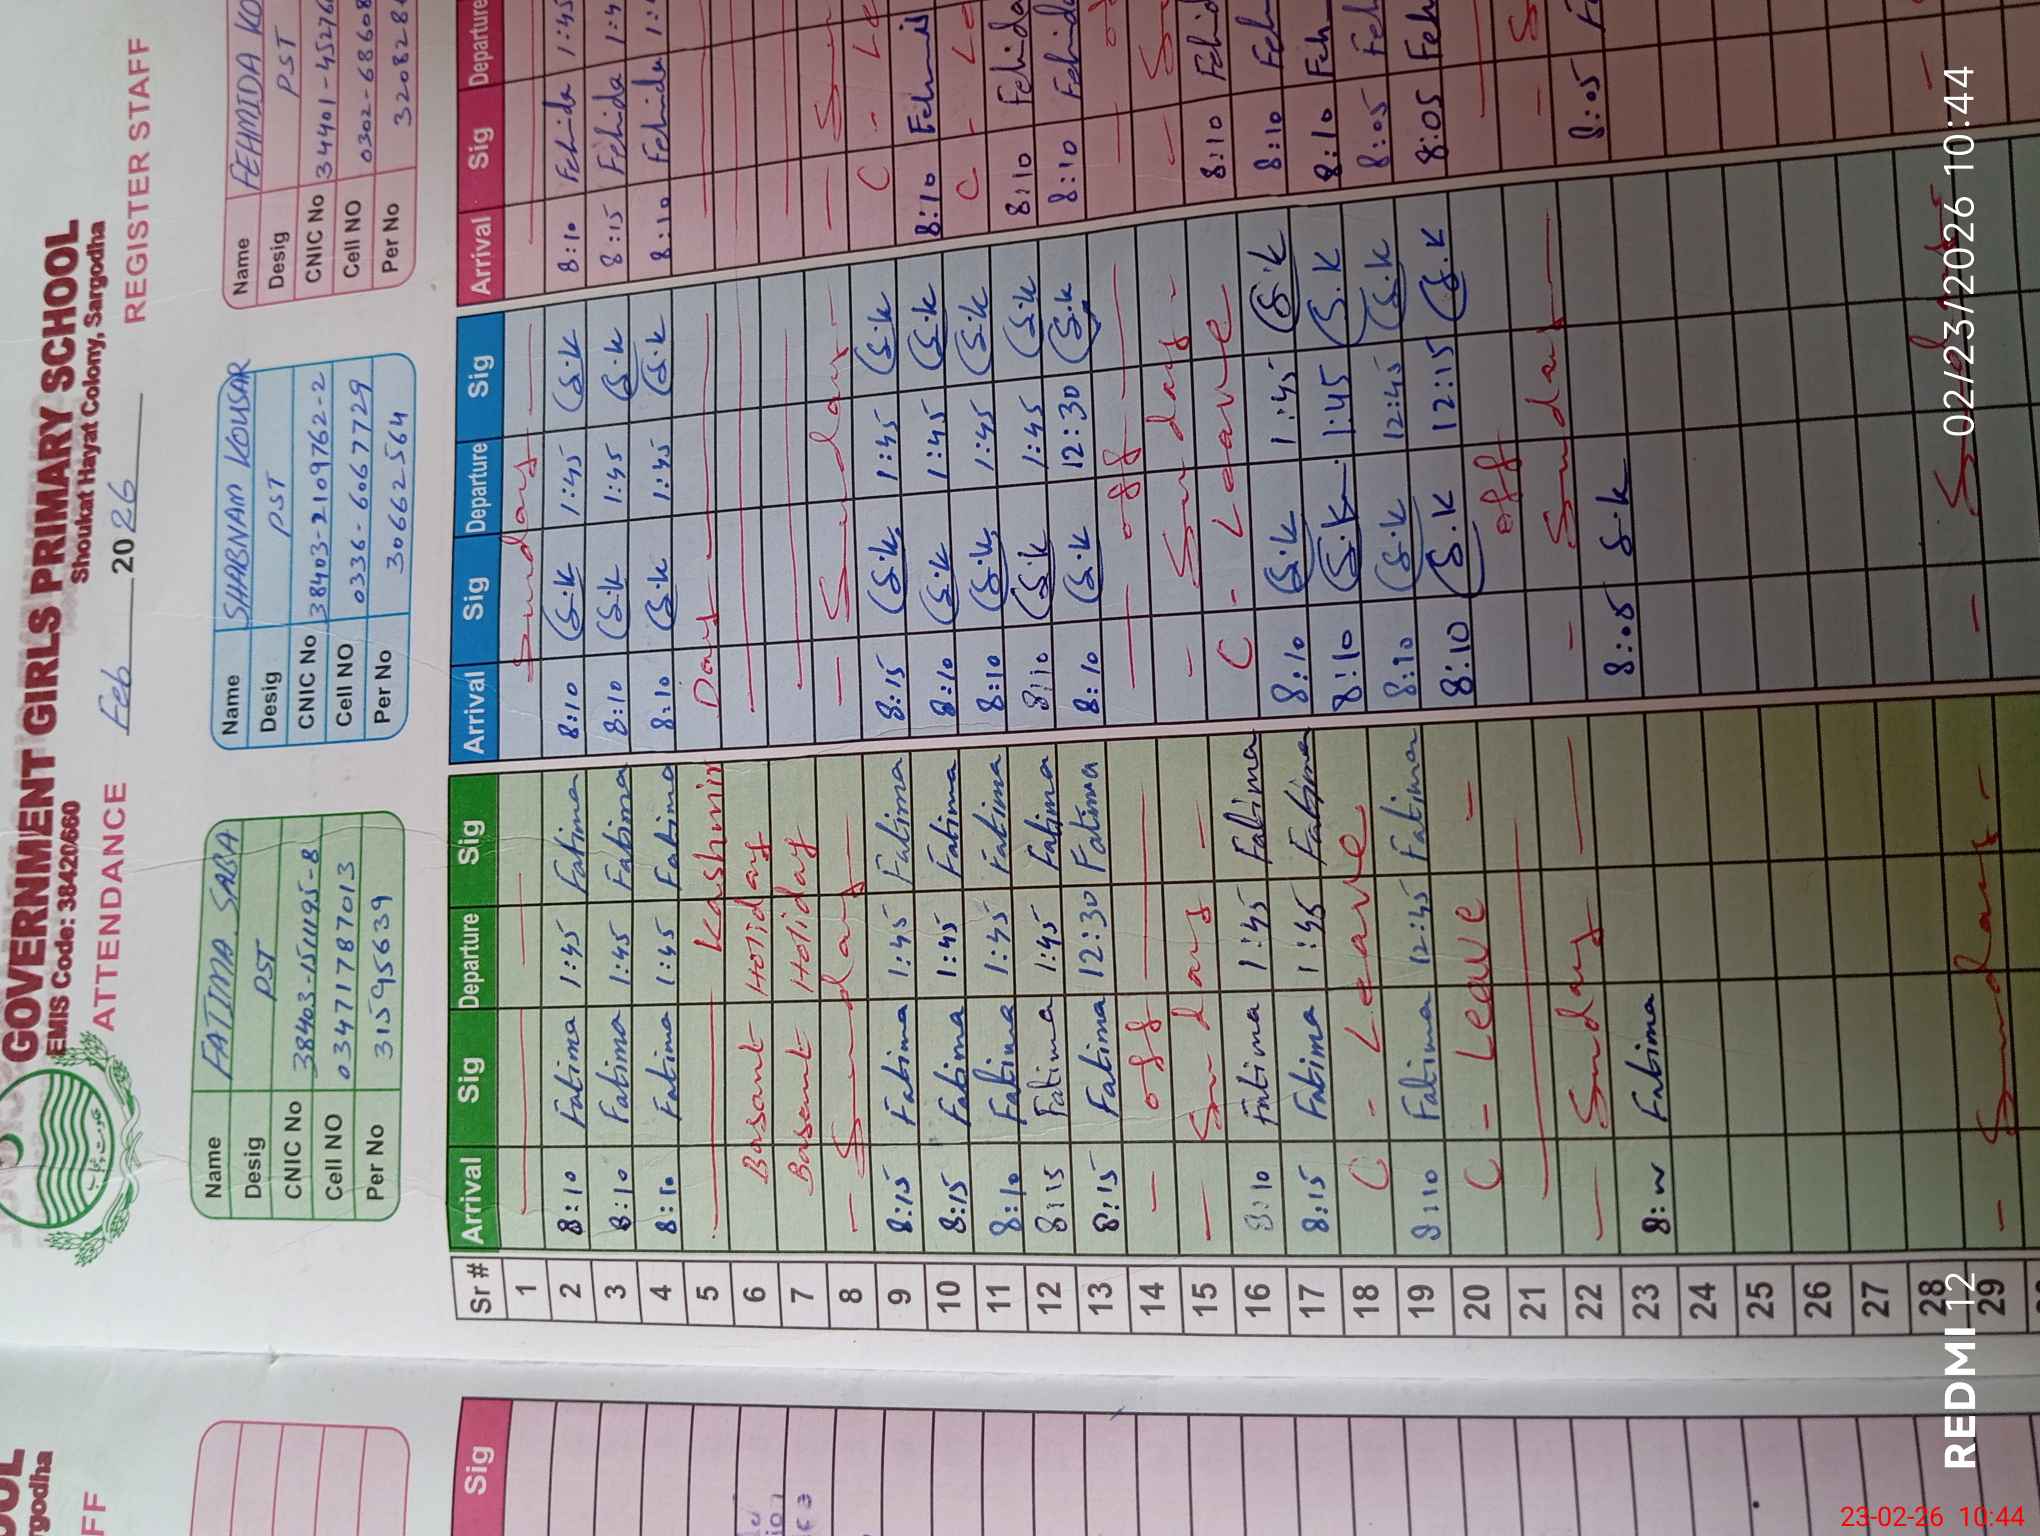 GOVERNMENT GIRLS PRIMARY SCHOOL
EMIS Code: 38420660 Shoukat Hayat Colony, Sargodha
ATTENDANCE Feb 2026 REGISTER STAFF
Name FATIMA SABA
Desig PST
CNIC No
Cell NO 03471787013
Per No 31595639
Name SHABNAM KOUSAR
Desig PST
CNIC No 38403-2109762-2
Cell NO 0336-6067729
Per No 30662564
Name FEHMIDA KO
Desig PST
CNIC No 34401-45276
Cell NO 0302-68608
Per No 320828
Sr # Arrival Sig Departure Sig Arrival Sig Departure Sig Arrival Sig Departure
1 Sunday
2 8:10 Fatima 1:45 Fatima 8:10 S.K 1:45 S.K 8:10 Fehida 1:45
3 8:10 Fatima 1:45 Fatima 8:10 S.K 1:45 S.K 8:15 Fehida 1:4
4 8:10 Fatima 1:45 Fatima 8:10 S.K 1:45 S.K 8:10 Fehida 1:
5 Kashmir Day
6 Basant Holiday
7 Basant Holiday
8 - Sunday - - Sunday - - Sun
9 8:15 Fatima 1:45 Fatima 8:15 S.K 1:45 S.K C - Le
10 8:15 Fatima 1:45 Fatima 8:10 S.K 1:45 S.K 8:10
11 8:10 Fatima 1:45 Fatima 8:10 S.K 1:45 S.K C - Le
12 8:15 Fatima 1:45 Fatima 8:10 S.K 1:45 S.K 8:10 Fehida
13 8:15 Fatima 12:30 Fatima 8:10 S.K 12:30 S.K 8:10 Fehida
14 - off - - off - - o
15 - Sunday - - Sunday - - S
16 8:10 Fatima 1:45 Fatima C - Leave 8:10 Fehid
17 8:15 Fatima 1:45 Fatima 8:10 S.K 1:45 S.K 8:10 Feh
18 C - Leave 8:10 S.K 1:45 S.K 8:10 Feh
19 8:10 Fatima 12:45 Fatima 8:10 S.K 12:45 S.K 8:05 Feh
20 C - Leave - 8:10 S.K 12:15 S.K 8:05 Feh
21 off
22 - Sunday - - Sunday - - S
23 8: Fatima 8:05 S.K 8:05 F
24
25
26
27
28
29 - Sunday - - Sunday -
OOL
rgodha
FF
Sig
REDMI 12 02/23/2026 10:44
23-02-26 10:44